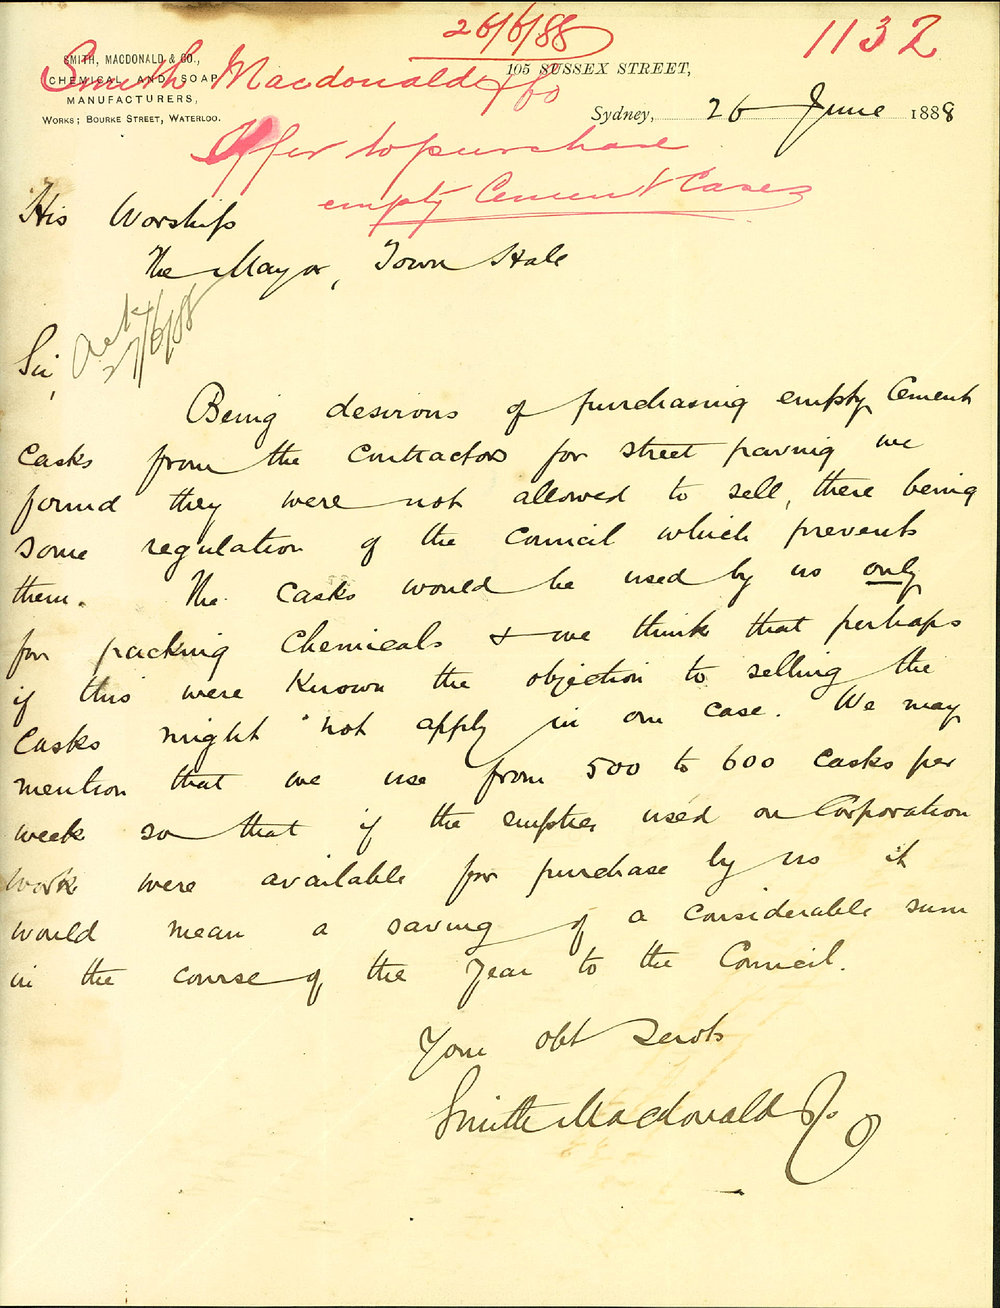 26/6/88
1132
SMITH, MACDONALD & CO.,
CHEMICAL AND SOAP
MANUFACTURERS,
WORKS; BOURKE STREET, WATERLOO.
Smith Macdonald & Co
105 SUSSEX STREET,
Sydney, 26 June 1888
Offer to purchase
empty Cement Cases
His Worship
The Mayor, Town Hall
Ack
27/6/88
Sir,
Being desirous of purchasing empty Cement
Casks from the Contractors for street paving we
found they were not allowed to sell, there being
some regulation of the Council which prevents
them. The Casks would be used by us only
for packing Chemicals & we think that perhaps
if this were Known the objection to selling the
Casks might not apply in our case. We may
mention that we use from 500 to 600 casks per
week so that if the empties used on Corporation
work were available for purchase by us it
would mean a saving of a considerable sum
in the course of the year to the Council.
Your obt servts
Smith Macdonald & Co